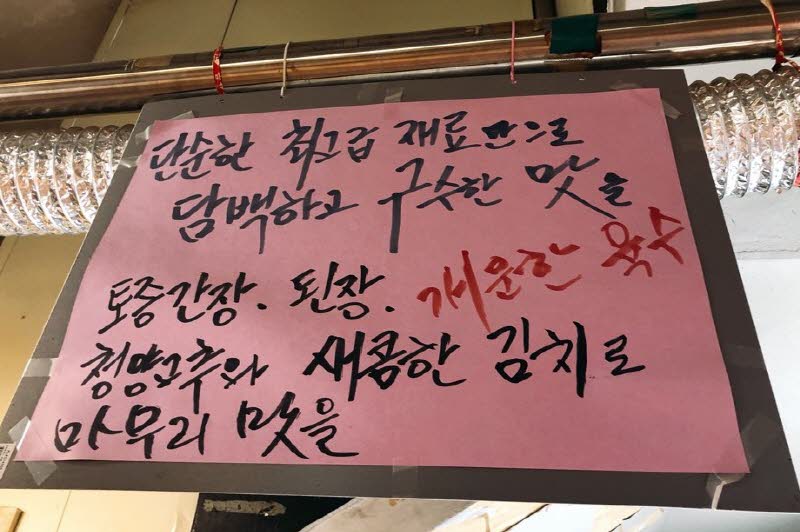 단순한 최고급 재료만으로
담백하고 구수한 맛을
토종간장. 된장. 개운한 육수
청양고추와 새콤한 김치로
마무리 맛을